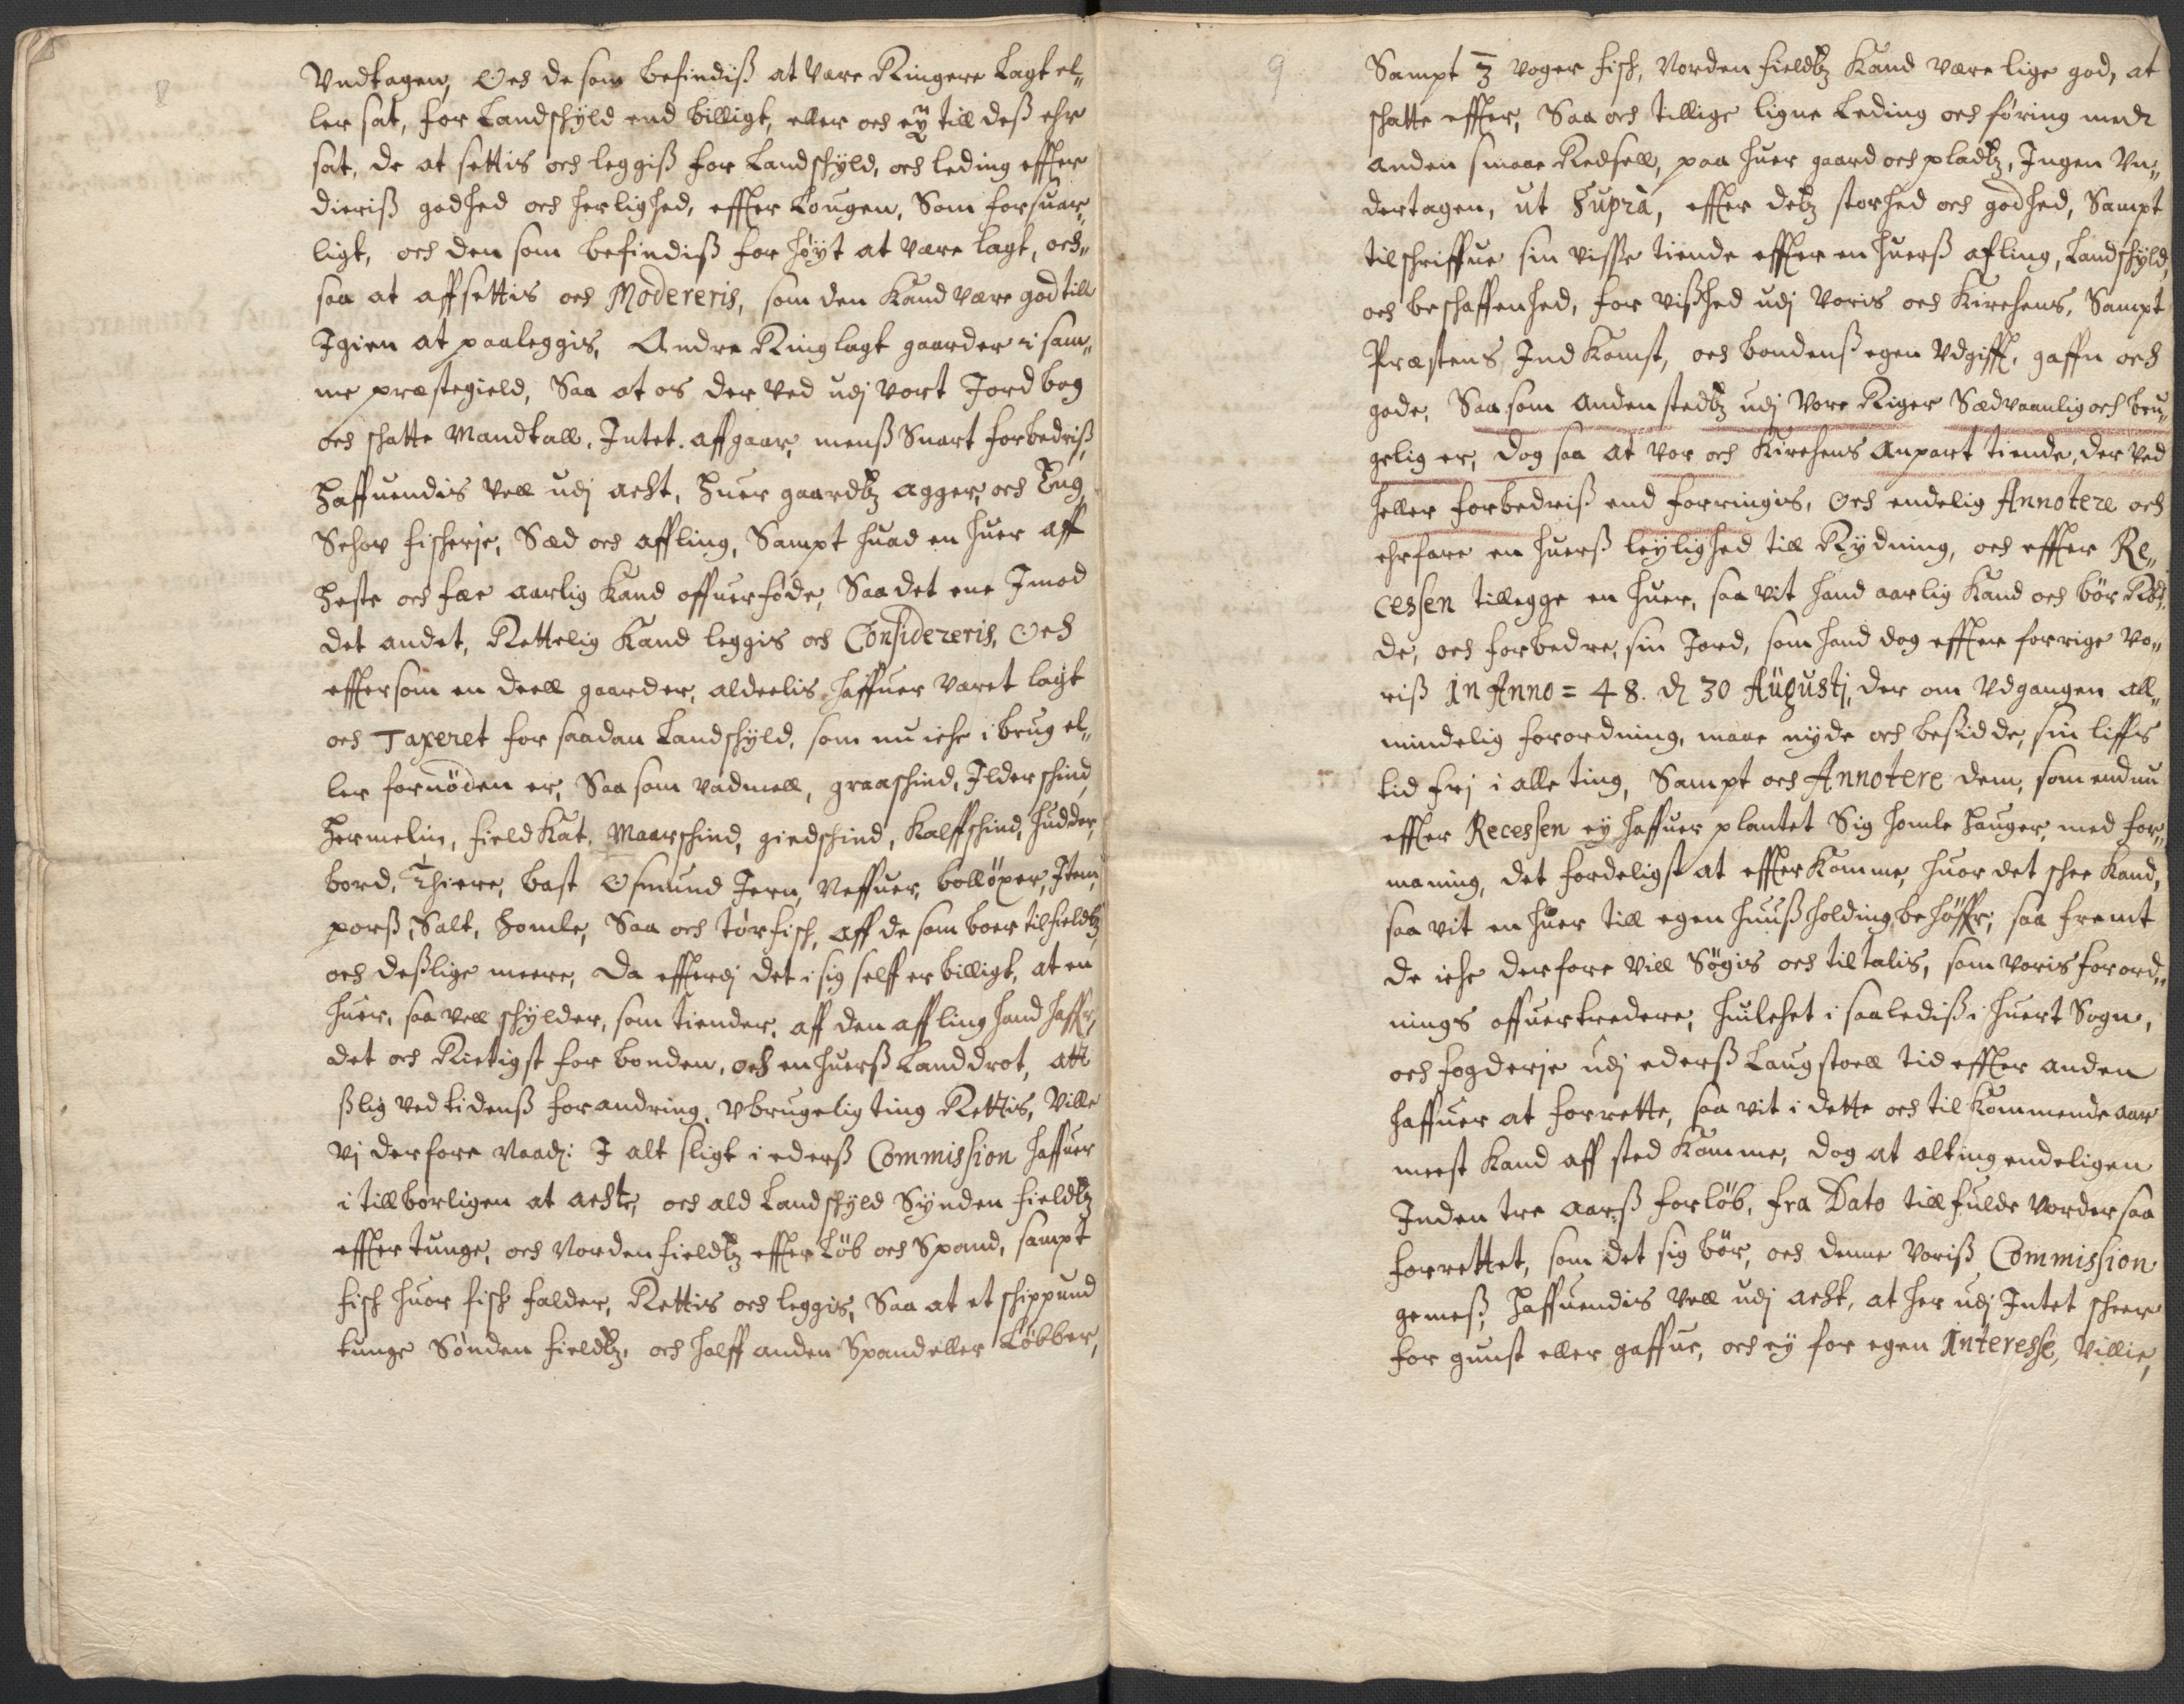 8
Vndtagen, Och de som befindiß at være Ringere Lagt el„
ler sat, for Landschyld end billigt, eller och eÿ till deß ehr
sat, de at settis och leggiß for Landschyld, och leding effter
dieriß godhed och herlighed, effter Lougen, Som forsuar„
ligt, och den som befindiß for høyt at være lagt, och„
saa at affsettis och Modereris, som den Kand være god till
Igien at paaleggis, Andre Ringlagt gaarder i sam„
me præstegield, Saa at os der ved udj vort Jordbog
och schatte Mandtall, Intet affgaar, menß Snart forbedriß,
Haffuendis vell udj acht, Huer gaardtz agger, och Eng,
Schov fischerje, Sæd och affling, Sampt huad en huer aff
Heste och fæe aarlig Kand offuerføde, Saa det ene Imod
det andet, Rettelig Kand leggis och Considereris, Och
efftersom en deell gaarder, aldeelis haffuer været lagt
och Taxeret for saadan Landschyld, som nu iche i brug el„
ler fornöden er, Saa som vadmell, graaschind, Ilderschind,
Hermelin, field Kat, Maarschind, giedschind, Kalffschind, Hudder,
bord, Thiere, bast Osmund Jern, Neffuer, bollöxer, Item,
porß, Salt, Homle, Saa och törfisch, aff de som boer tilfieldtz,
och deßlige meere, da efftterdj det i sig self er billigt, at en
huer, saa vell schylder, som tiender, aff den affling hand haffr,
det och Rictigst for bonden, och en huerß Landdrot, att
ßlig ved tidenß forandring, vbrugelig ting Rettis, Ville
vj derfore Naadj: I alt sligt i ederß Commission haffuer
i tillbörligen at achte, och ald Landschyld Synden fieldtz
effter tunge, och Norden fieldtz effter Löb och Spand, sampt
fisch huor fisch falder, Rettis och leggis, Saa at et schippund
tunge Sönden fieldtz, och halff anden Spand eller Løbber,
9
Sampt 3 voger fisch, Norden fieldtz Kand være lige god, at
schatte effter, Saa och tillige ligne Leding och föring med
anden smaae Redsell, paa huer gaard och pladtz, Ingen Vn„
dertagen, ut Supra, effter detz storhed och godhed, Sampt
tilschriffue sin visse tiende effter en huerß afling, Landschyld,
och beschaffenhed, for vißhed udj Voris och Kirchens, Sampt
Præstens, Ind Komst, och bondenß egen Vdgifft, gaffn och
gode, Saa som anden stedtz udj Vore Riger Sædvaanlig och bru„
gelig er, dog saa at vor och Kirchens anpart tiende, der ved
heller forbedriß end forringis, Och endelig Annotere och
ehrfare en huerß leylighed till Rydning, och effter Re„
cessen tillegge en huer, saa vit hand aarlig Kand och bör Ryd„
de, och forbedre, sin Jord, som hand dog effter forrige Vo„
riß in Anno = 48. d 30 Augusti, der om Vdgangen all„
mindelig forordning, maae nyde och besidde, sin liffs
tid frj i alle ting, Sampt och Annotere dem, som endnu
effter Recessen ey haffuer plantet Sig Homle Hauger, med for„
maning, det fordeligst at effterKomme, huor det schee Kand,
saa vit en huer till egen huußholding behöffr, saa fremt
de iche derfore vill Søgis och til talis, som voris forord„
nings offuertredere, huilchet i saalediß i huert Sogn,
och fogderje udj ederß Laugstoell tid effter anden
haffuer at forrette, saa vit i dette och tilkommende aar
meest Kand aff sted Komme, dog at alting endeligen
Inden tre aarß forlöb, fra Dato till fulde vorder saa
forrettet, som det sig bör, och denne voriß Commission
gemeß, Haffuendis vell udj acht, at her udj Intet scheer
for gunst eller gaffue, och ey for egen Interesse, Villie,